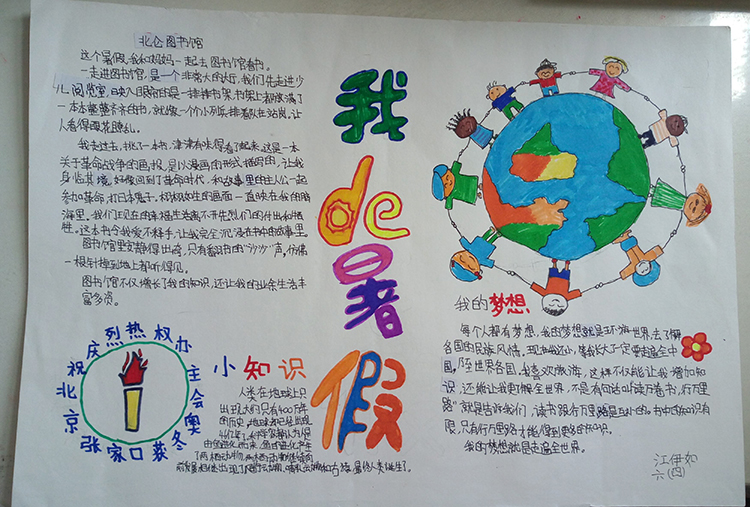 北仑图书馆
这个暑假,我和妈妈一起去图书馆看书。
一走进图书馆,是一个非常大的大厅,我们先走进少
儿阅览室,映入眼帘的是一排排书架,书架上都摆满了
一本本整整齐齐的书,就像一个个小列兵排着队在站岗,让
人看得眼花瞭乱。
我走过去,挑了一本书,津津有味得看了起来,这是一本
关于革命战争的画报,是以漫画的形式描写的,让我
身临其境,好像回到了革命时代,和故事里的主人公一起
参加革命,打日本鬼子。栩栩如生的画面一直映在我的脑
海里。我们现在的幸福生活离不开先烈们的付出和牺
牲。这本书令我爱不释手,让我完全沉浸在书中的故事里。
图书馆里安静得出奇,只有翻书的“沙沙”声,仿佛
一根针掉到地上都听得见。
图书馆不仅增长了我的知识,还让我的业余生活丰
富多资。
我
de
暑
假
我的梦想
每个人都有梦想,我的梦想就是环游世界,去了解
各国的民族风情。现在我还小,等我长大了一定要走遍全中
国,至世界各国。我喜欢旅游,这样不仅能让我增加知
识,还能让我更了解全世界。不是有句话叫“读万卷书,行万里
路”就是告诉我们,读书跟行万里路是互补的,书中的知识有
限,只有行万里路才能得到更多的知识。
我的梦想就是走遍全世界。
江伊如
六(四)
北京张家口获冬奥会主办权热烈庆祝
小知识
人类在地球上只
出现大约只有400万年
的历史,地球却已经出现
46亿年了。